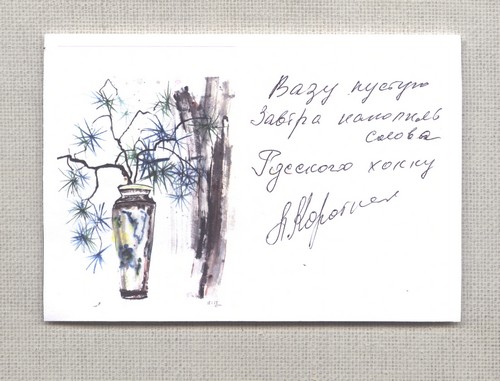 Вазу пустую
Завтра наполнят
слова
Русского хокку